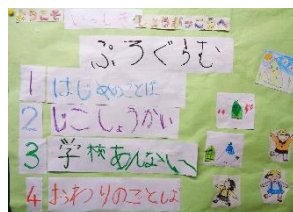 ようこそ いっしき しょうがっこうへ
ぷろぐらむ
1 はじめのことば
2 じこしょうかい
3 学校あんない
4 おわりのことば